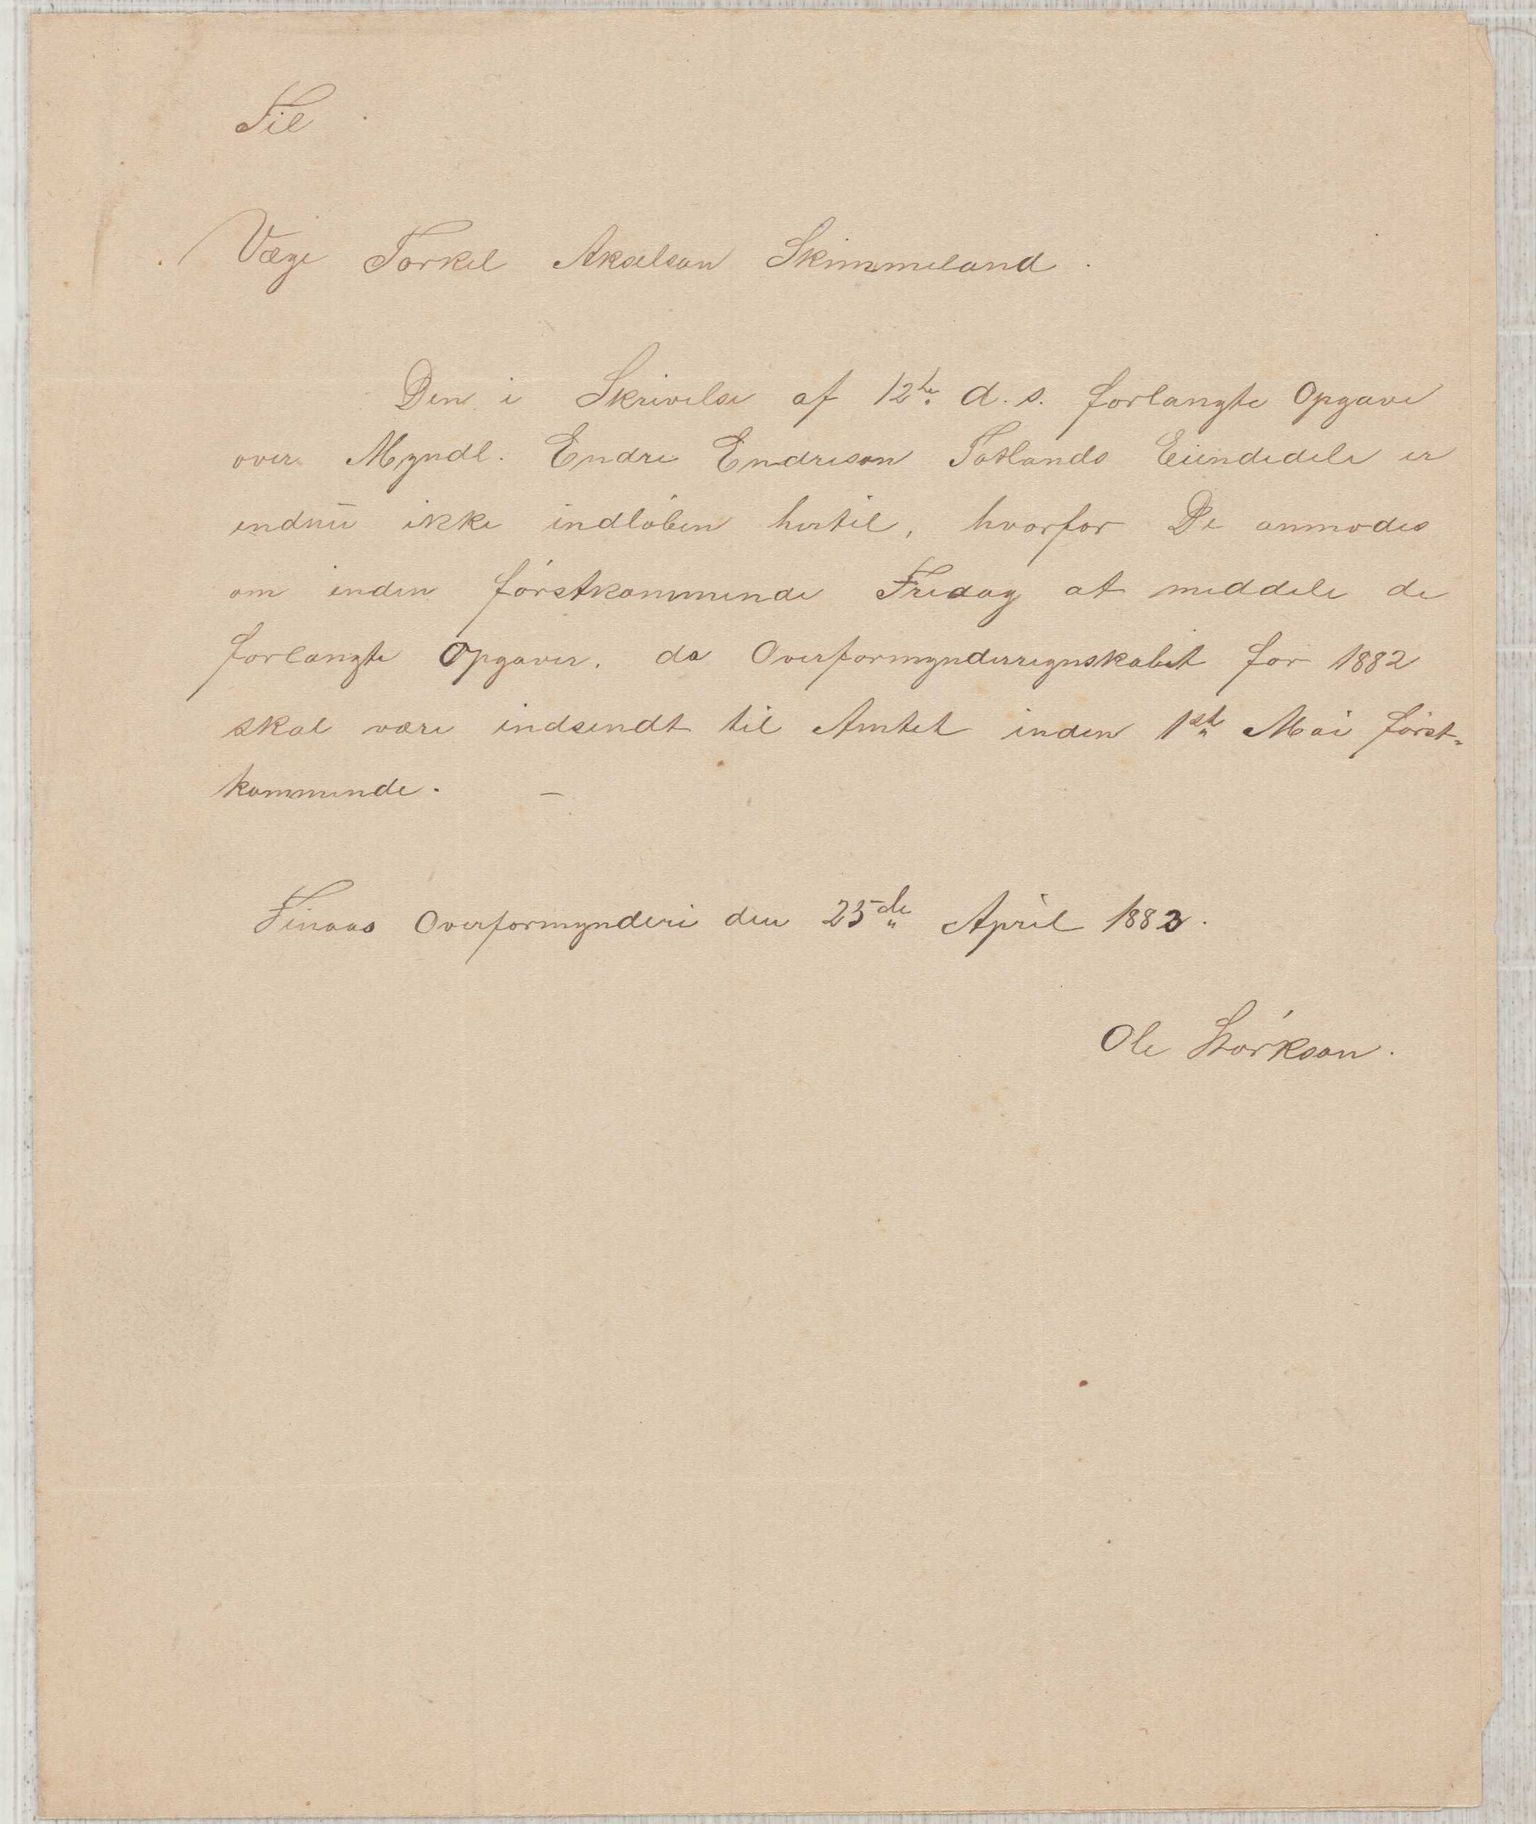 Til
Værge Torkel Akselson Skimmeland.
Den i Skrivelse af 12te d. s. forlangte Opgave
over Myndl. Endre Endreson Totlands Eiendele er
endnu ikke indløben hertil, hvorfor De anmodes
om inden førstkommende Fredag at meddele de
forlangte Opgaver, da Overformynderregnskabet for 1882
skal være indsendt til Amtet inden 1ste Mai først-
kommende. —
Finaas Overformynderi den 25de April 1883.
Ole Størkson.